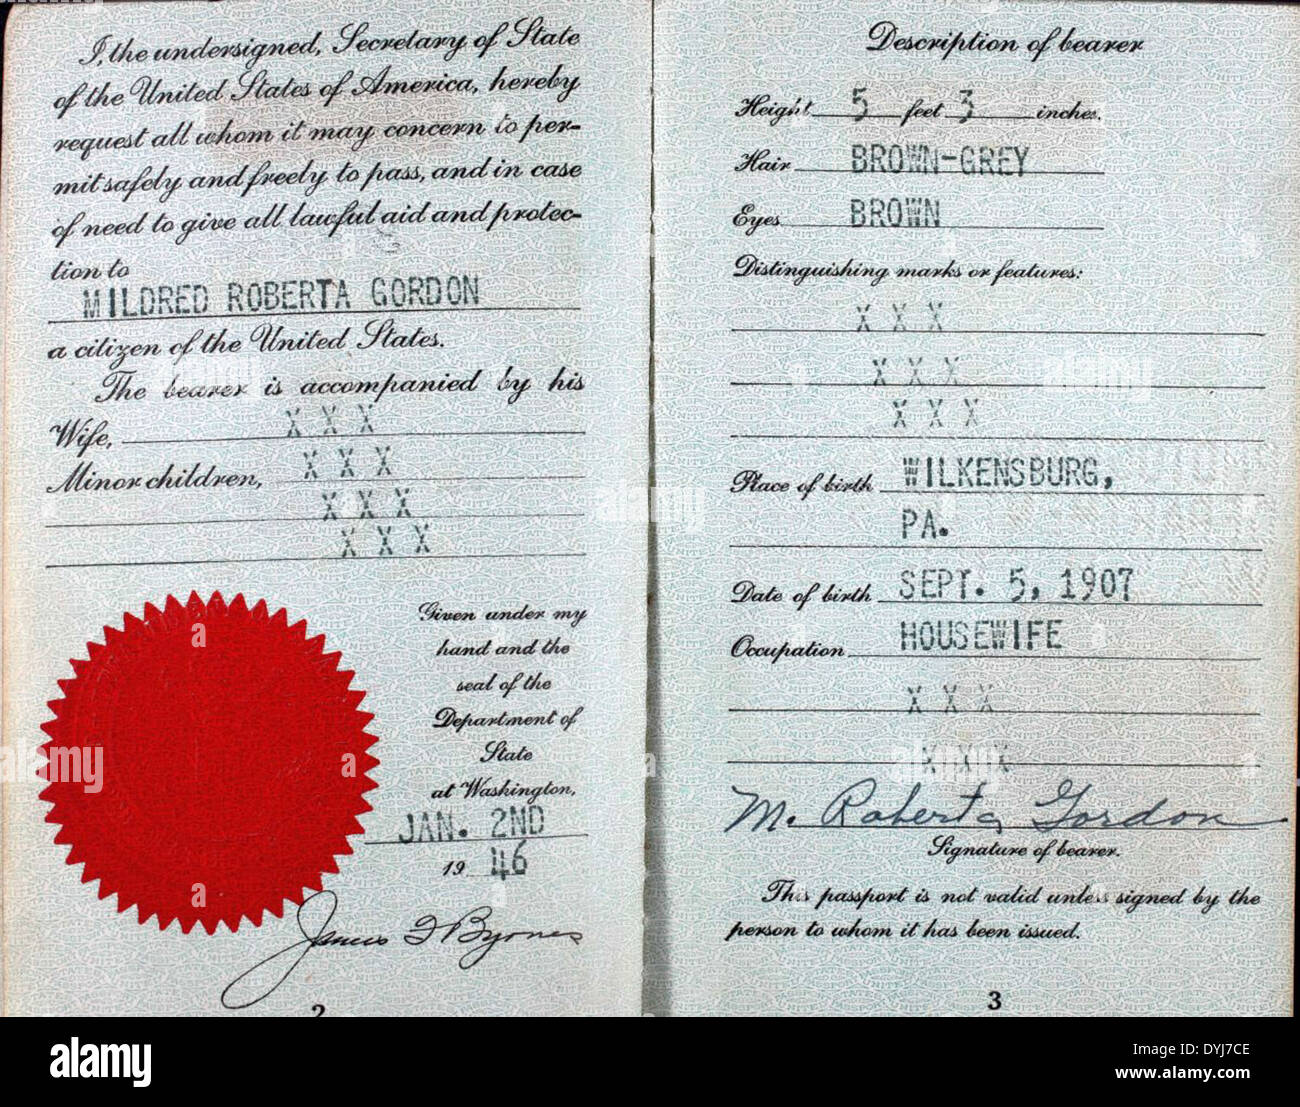 I, the undersigned, Secretary of State
of the United States of America, hereby
request all whom it may concern to per-
mit safely and freely to pass, and in case
of need to give all lawful aid and protec-
tion to
MILDRED ROBERTA GORDON
a citizen of the United States.
The bearer is accompanied by his
Wife, X X X
Minor children, X X X
X X X
X X X
Given under my
hand and the
seal of the
Department of
State
at Washington,
JAN. 2ND
19 46
James F Byrnes
2
Description of bearer
Height 5 feet 3 inches.
Hair BROWN-GREY
Eyes BROWN
Distinguishing marks or features:
X X X
X X X
X X X
Place of birth WILKENSBURG,
PA.
Date of birth SEPT. 5, 1907
Occupation HOUSEWIFE
X X X
X X X
M. Roberta Gordon
Signature of bearer.
This passport is not valid unless signed by the
person to whom it has been issued.
3
alamy
alamy
Image ID: DYJ7CE
www.alamy.com